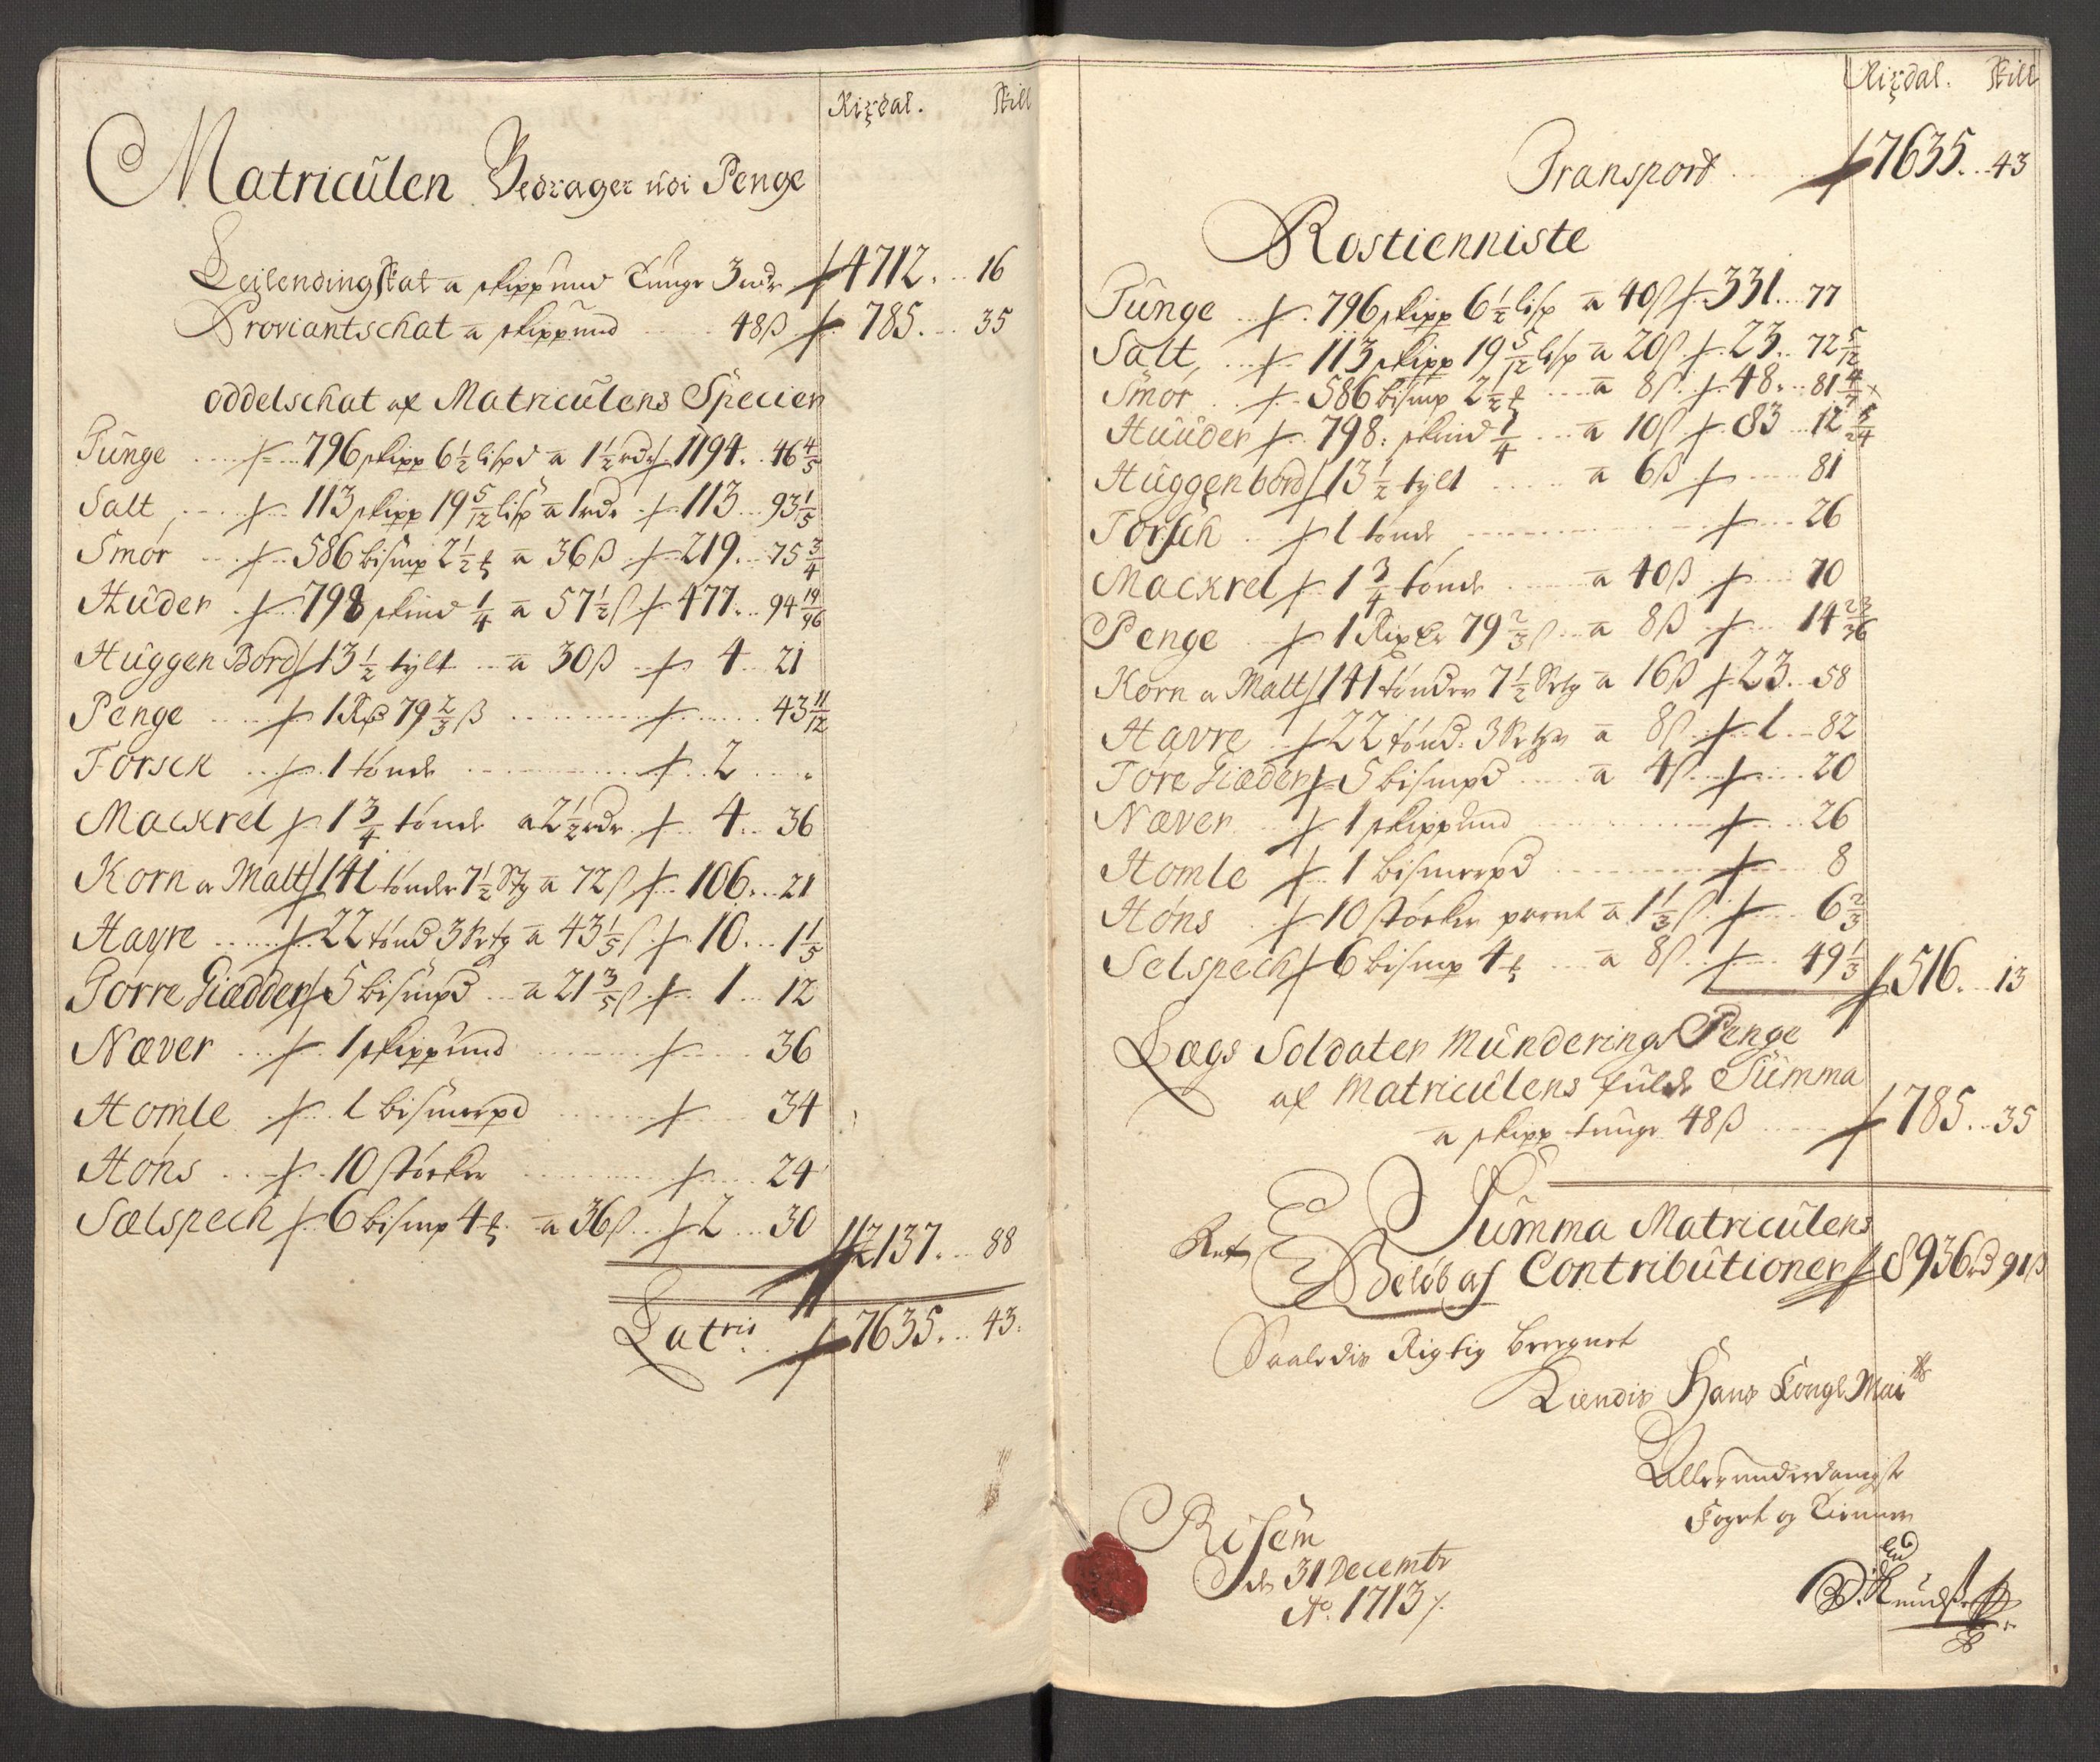 Rixdal. Skill
Matriculen Bedrager udi Penge
Leilending Skat a skippund Tunge 3 rdr 4712. 16
Proviantschat a skippund 48ß 785. 35
Oddelschat af Matriculens Specier
Tunge 796 skipp 6 1/2 lispd a 1 1/2 rdr 1194. 46 4/5
Salt 113 skipp 19 5/12 lisp a 1 rdr 113. 93 1/5
Smör 586 bismp 2 1/2 a 36ß 219. 75 3/4
Huder 798 skind 1/4 a 57 1/2 ß 477. 94 19/96
Huggen Bord 13 1/2 tylt a 30ß 4. 21
Penge 1 Rß 79 2/3 ß 43 11/12
Torsck 1 tönde 2
Mackrel 1 3/4 tönde a 2 1/2 rdr 4. 36
Korn a Malt 141 tönder 7 1/2 Stg a 72ß 106. 21
Havre 22 tönd 3 Srtg a 43 1/5 ß 10. 1 1/5
Törre Giedder 5 bismpd a 21 3/5 ß 1. 12
Næver 1 skippund 36
Homle 1 bismerpd 34
Höns 10 störker 24
Sælspech 6 bismp 4 a 36ß 2. 30 2137. 88
Latris 7635. 43
Rixdal. Skill
Transport 7635. 43
Rostienniste
Tunge 796 skipp 6 1/2 lisp a 40ß 331. 77
Salt, 113 skipp 19 5/12 lisp a 20ß 23. 72 5/12
Smör 586 bismp 2 1/2 a 8ß 48. 81 4/7
Huuder 798: skind 1/4 a 10ß 83. 12 5/24
Huggenbord 13 1/2 tylt a 6ß 81
Torsch 1 tönde 26
Mackrel 1 3/4 tönde a 40ß 70
Penge 1 Rixdr 79 2/3 ß a 8ß 14 23/36
Korn a Malt 141 tönder 7 1/2 Srtg a 16ß 23. 58
Havre 22 tönd. 3 Srtger a 8ß 1. 82
Töre Giæder 5 bismpd a 4ß 20
Næver 1 skippund 26
Homle 1 bismerpd 8
Höns 10 störker paret a 1 1/3 ß 6 2/3
Selspech 6 bismp 4 a 8ß 49 1/3 516. 13
Lægs Soldater Munderings Penge
af Matriculens fulde Summa
a skipp tunge 48ß 785. 35
Summa Matriculens
Beløb af Contributioner 8936 rd 91ß
Saaledis Rigtig beregnet
Kiendis Hans Kongl Mai
Allerunderdanigste
Foget og Tienner
Risem
d 31 Decembr
Ao. 1713
Knudß